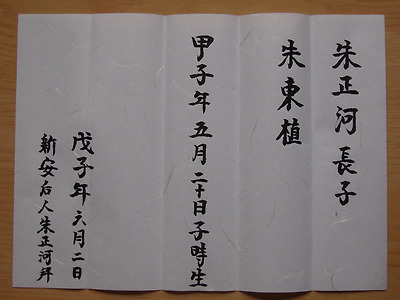 朱正河長子
朱東植
甲子年五月二十日子時生
戊子年六月二日
新安后人朱正河拜